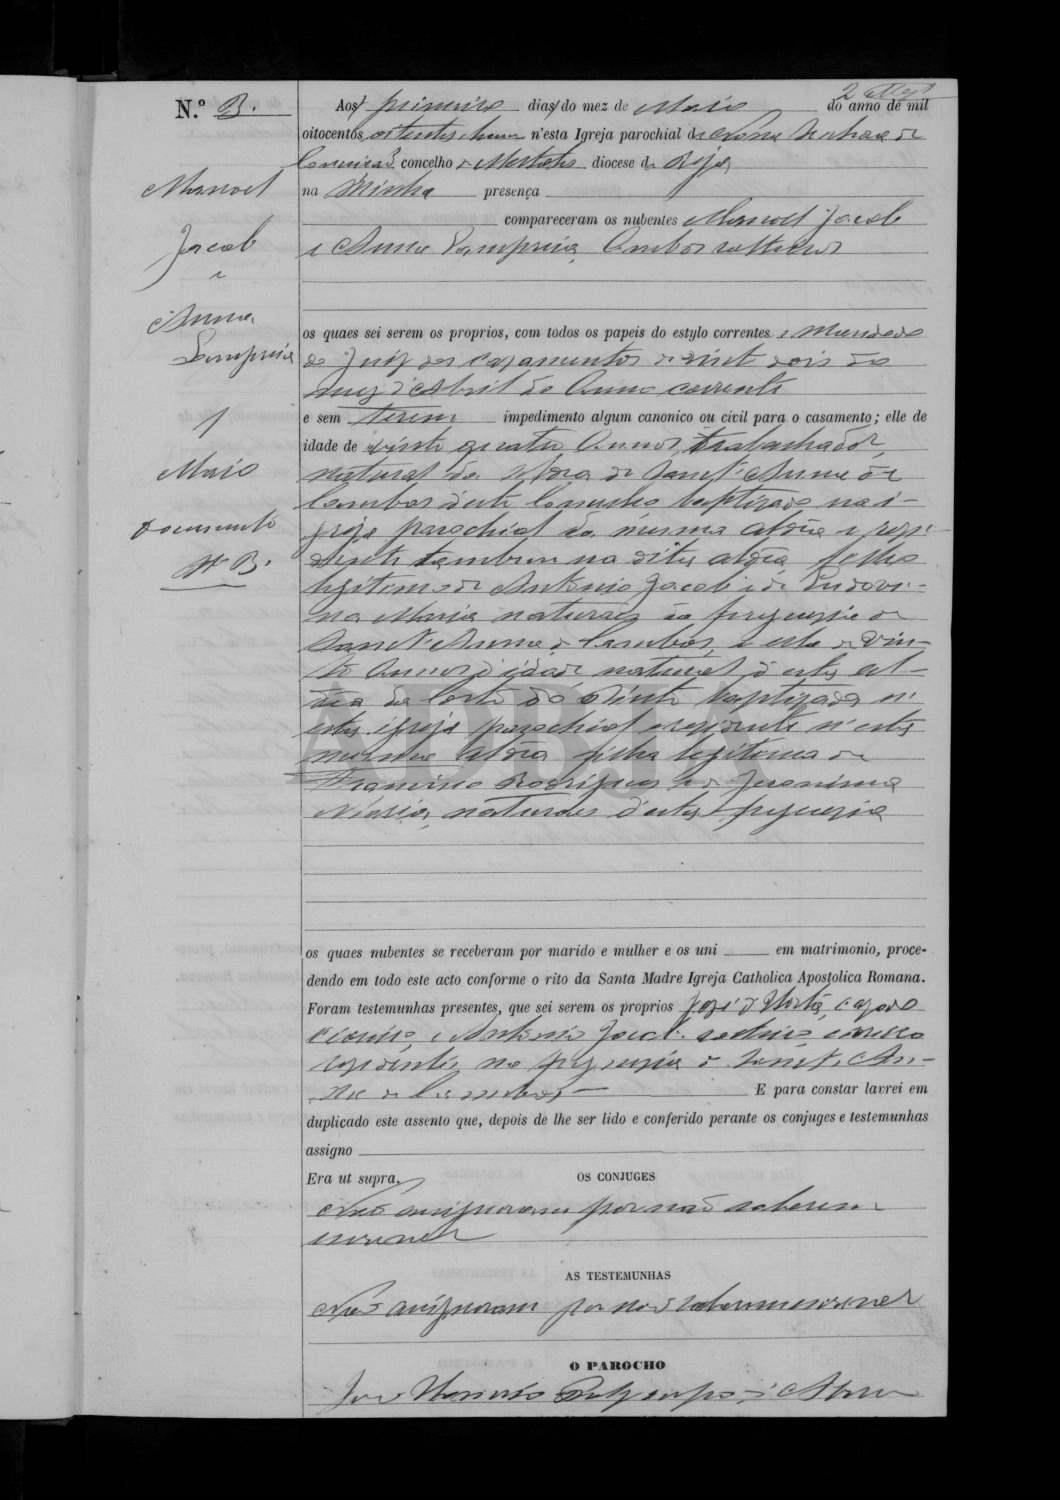 N.º B.
Aos primeiro dias do mez de Maio do anno de mil
oitocentos oitenta e hum n'esta Igreja parochial de
concelho de Mertola diocese de Beja
na Minha presença
compareceram os nubentes Manoel Jacob
e Anna Sampreia, Ambos solteiros
Manoel
Jacob
e
Anna
Sampreia
1
Maio
Documento
Nº B.
os quaes sei serem os proprios, com todos os papeis do estylo correntes e Mandado
do Juiz dos cazamentos de vinte dois do
mez d'Abril do Anno corrente
e sem terem impedimento algum canonico ou civil para o casamento; elle de
idade de vinte quatro Annos, trabalhador,
natural da Aldea de Sant'Anna de
Cambas d'este Concelho baptizado na i-
greja parochial da mesma aldêa e rezi-
dente tambem na dita aldêa filho
legitimo de Antonio Jacob e de Ludovi-
na Maria naturaes da freguezia de
Sant'Anna de Cambas, e ella de vin-
te Annos d'idade natural d'esta al-
dêa da Corte do Pinto baptizada n'
esta igreja parochial e rezidente n'esta
mesma aldêa filha legitima de
Francisco Rodrigues e de Jeronima
Maria, naturaes d'esta freguezia
os quaes nubentes se receberam por marido e mulher e os uni em matrimonio, proce-
dendo em todo este acto conforme o rito da Santa Madre Igreja Catholica Apostolica Romana.
Foram testemunhas presentes, que sei serem os proprios cazado
e Antonio Jacob solteiro
rezidentes na freguezia de Sant'An-
na de Cambas E para constar lavrei em
duplicado este assento que, depois de lhe ser lido e conferido perante os conjuges e testemunhas
assigno
Era ut supra.
OS CONJUGES
Não assignaram por não saberem
escrever
AS TESTEMUNHAS
Não assignaram por não saberem escrever
O PAROCHO